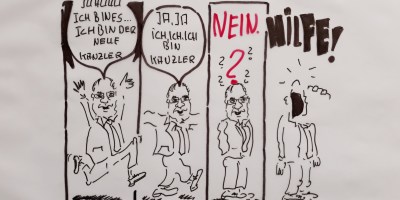 ICH BINES...
ICH BIN DER
NEUE
KANZLER
JA, JA
ICH, ICH, ICH
BIN
KANZLER
NEIN.
?
HILFE!